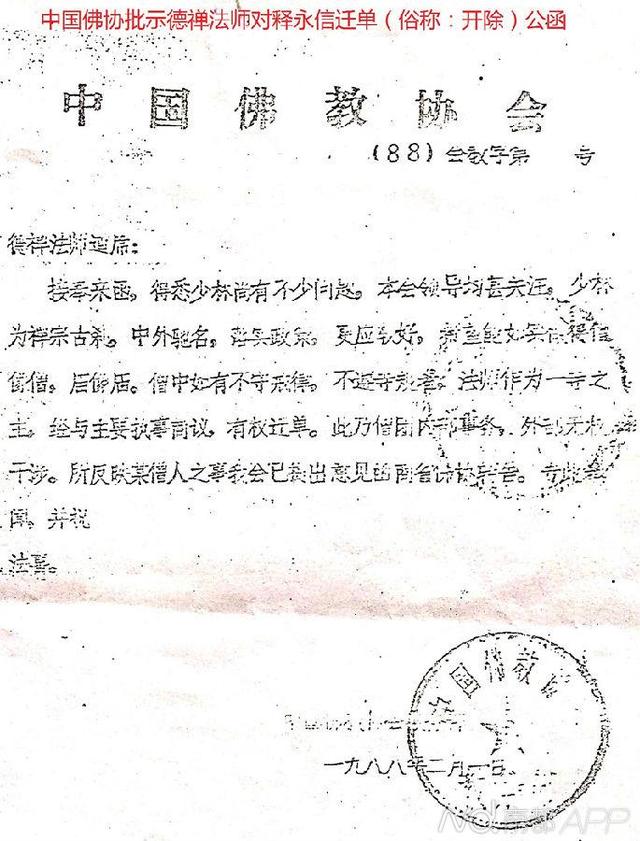 中国佛协批示德禅法师对释永信迁单（俗称：开除）公函
中国佛教协会
（88）会教字第 号
德禅法师莲席：
接奉来函，得悉少林尚有不少问题。本会领导均甚关注。少林
为禅宗古刹。中外驰名，落实政策。更应办好，
僧。 僧中如有不守戒律。不遵寺规者，法师作为一寺之
主，经与主要执事商议，有权迁单。此乃僧团内部事务，外部无权
干涉。所反映某僧人之事我会已提出意见函 专此奉
闻，并祝
法喜。
中国佛教
一九八八年二月一日
APP